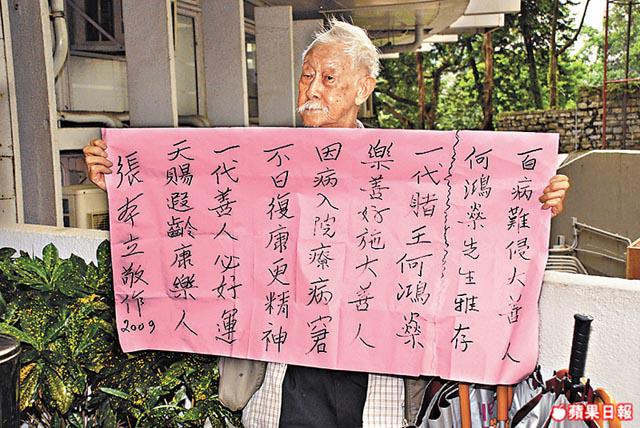 百病難侵大善人
何鴻燊先生雅存
一代賭王何鴻燊
樂善好施大善人
因病入院療病窘
不日復康更精神
一代善人必好運
天賜遐齡康樂人
張本立敬作
2009
蘋果日報